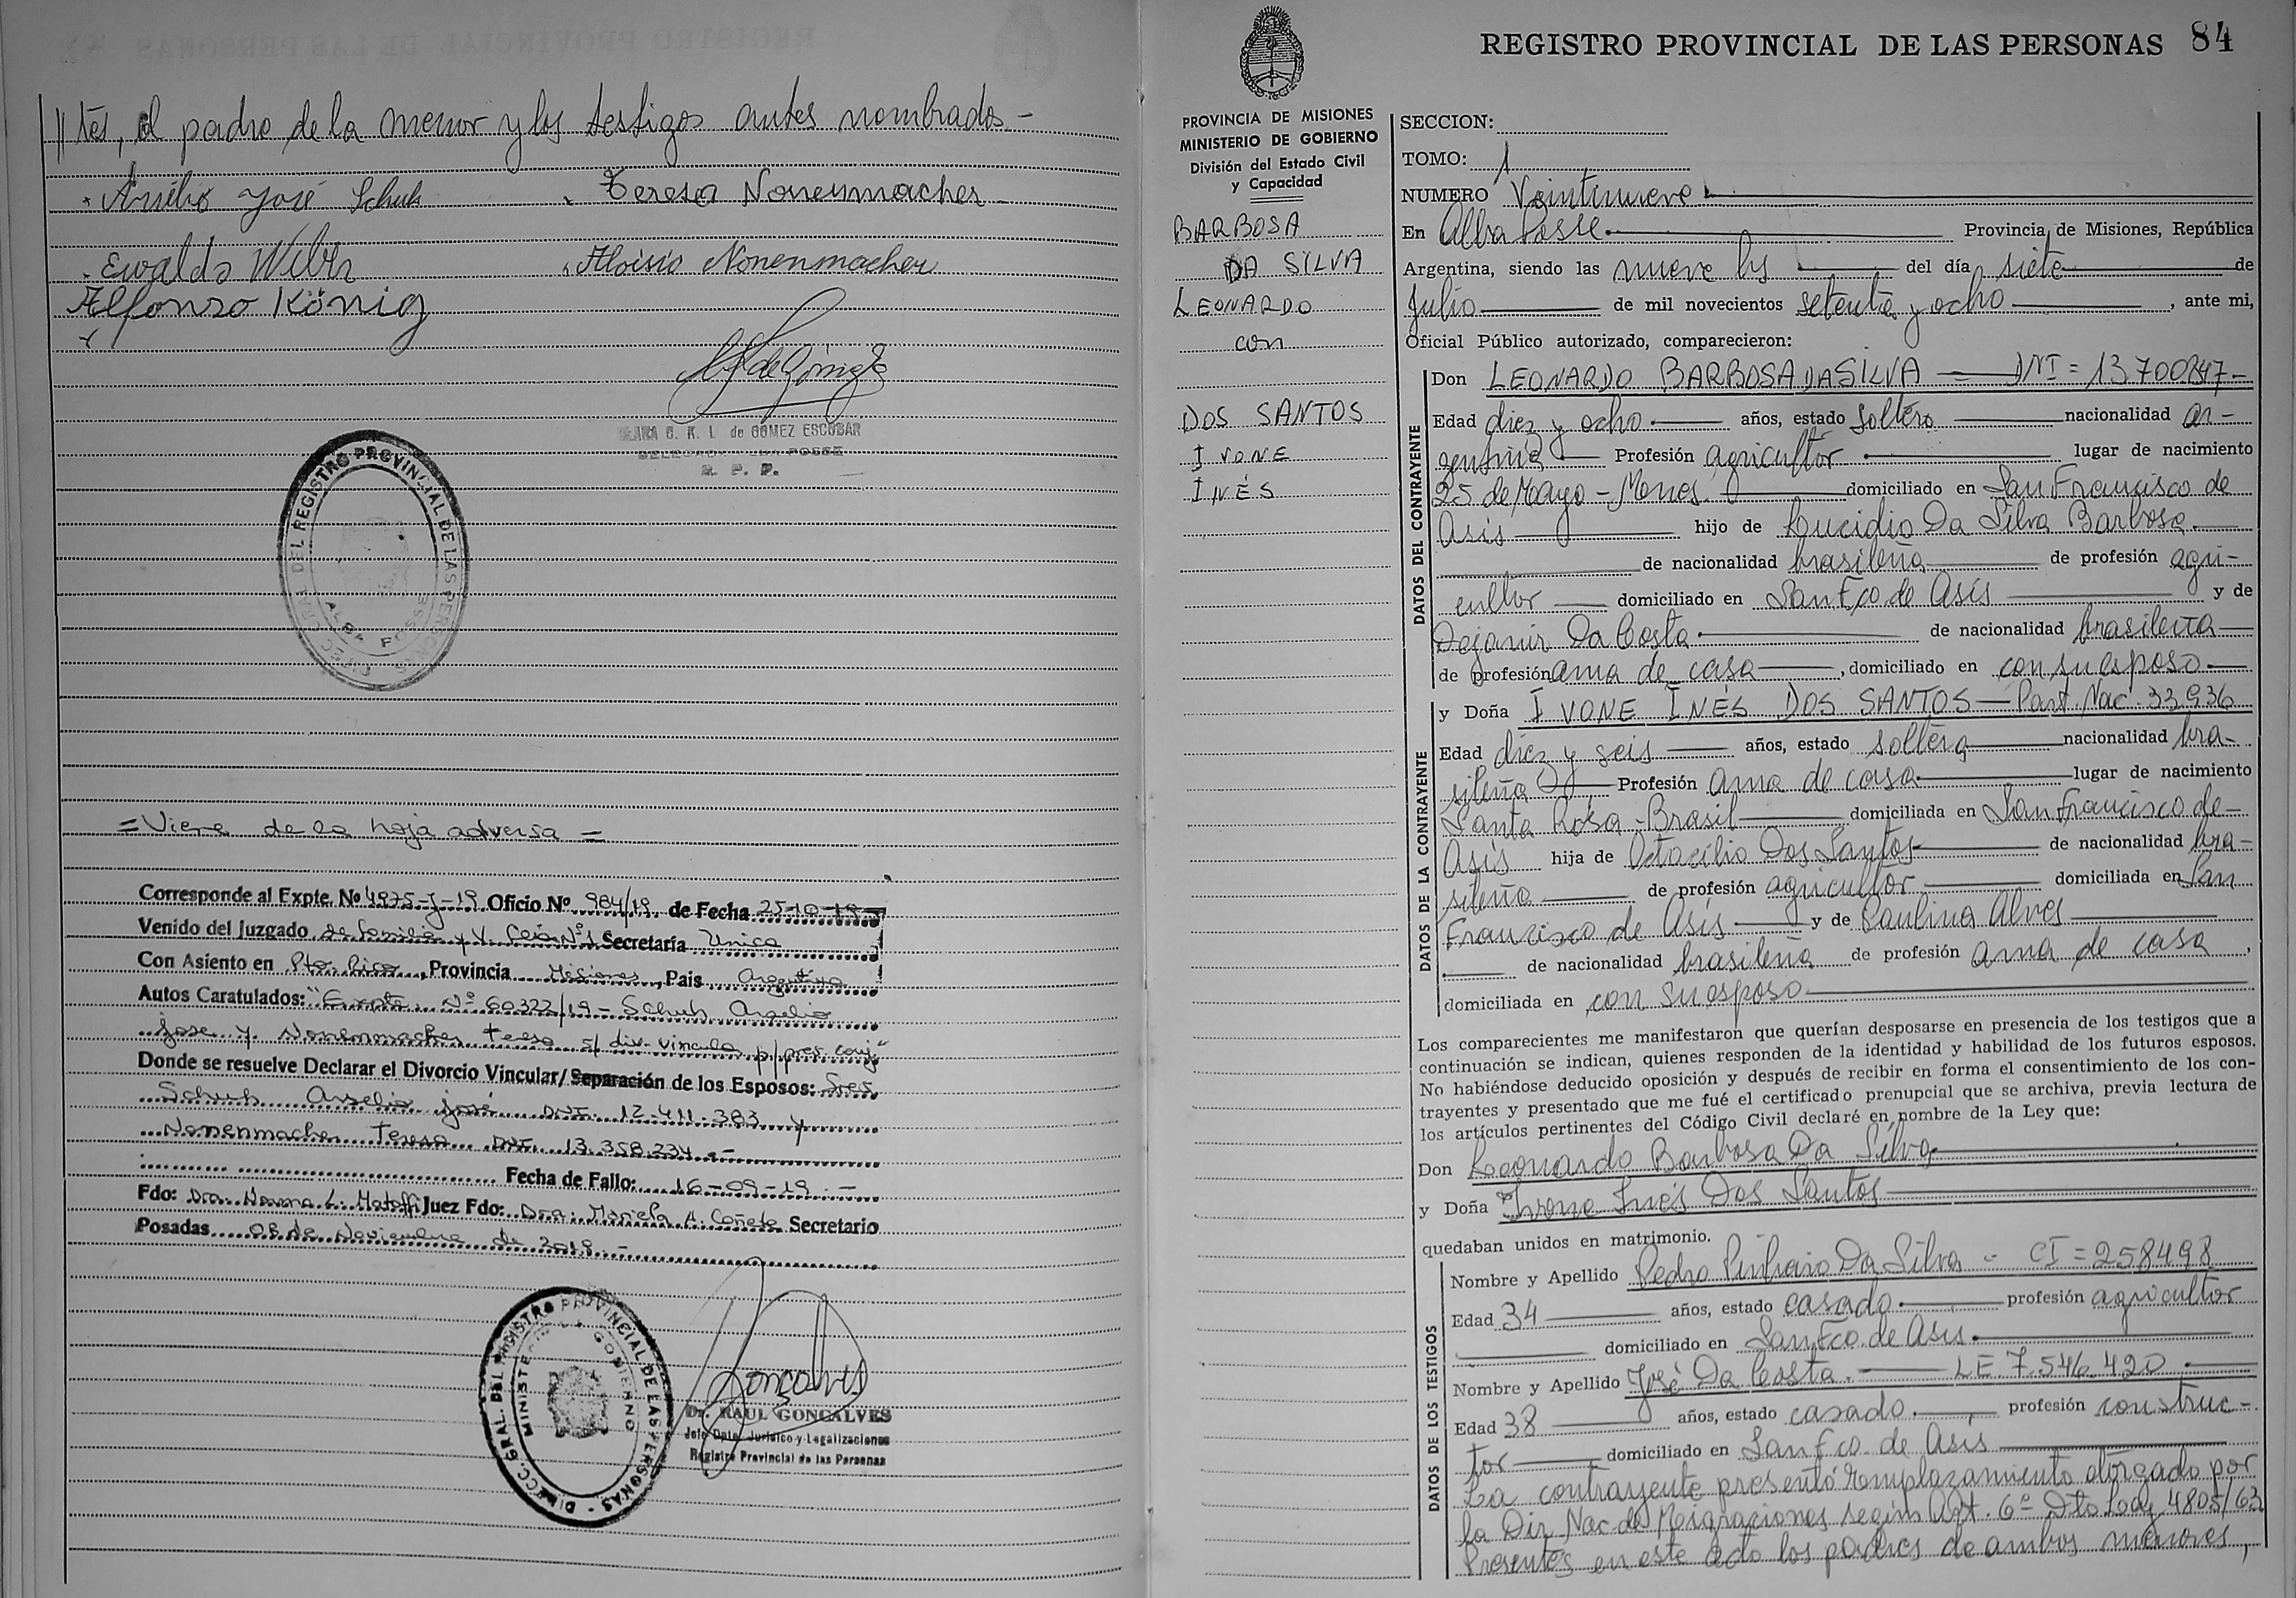 // tes, el padre de la menor y los testigos antes nombrados.-
José Schuh
Teresa Nonenmacher
Ewaldo
Aloisio Nonenmacher
Alfonso König
CLARA G. K. L. de GOMEZ ESCOBAR
DELEGADA ALBA POSSE
R. P. P.
DEL REGISTRO PROVINCIAL DE LAS PERSONAS
ALBA POSSE
= Viene de la hoja adversa =
Corresponde al Expte. Nº 4975-J-19 Oficio Nº 984/19 de Fecha 25-10-19
Venido del Juzgado de Familia y V. Nº1 Secretaría Unica
Con Asiento en Pto. Rico, Provincia Misiones, Pais Argentina
Autos Caratulados: "Expte. Nº 60322/19 - Schuh Anselio
José y Nonenmacher Teresa s/ div. vincular p/pres. conj."
Donde se resuelve Declarar el Divorcio Vincular/Separación de los Esposos: Sres
Schuh Anselio José DNI. 12.411.383 y
Nonenmacher Teresa DNI. 13.358.234.-
Fecha de Fallo: 16-09-19.-
Fdo: Dra. L. Juez Fdo: Dra. Mariela A. Cañete Secretario
Posadas 08 de Noviembre de 2019.-
DIRECC. GRAL. DEL REGISTRO PROVINCIAL DE LAS PERSONAS
MINISTERIO DE GOBIERNO
Dr. RAUL GONCALVES
Jefe Dpto. Jurídico y Legalizaciones
Registro Provincial de las Personas
REGISTRO PROVINCIAL DE LAS PERSONAS 84
PROVINCIA DE MISIONES
MINISTERIO DE GOBIERNO
División del Estado Civil
y Capacidad
BARBOSA
DA SILVA
LEONARDO
con
DOS SANTOS
IVONE
INÉS
SECCION:
TOMO: 1
NUMERO Veintinueve
En Alba Posse Provincia de Misiones, República
Argentina, siendo las nueve hs del día siete de
Julio de mil novecientos setenta y ocho, ante mi,
Oficial Público autorizado, comparecieron:
DATOS DEL CONTRAYENTE
Don LEONARDO BARBOSA DA SILVA DNI = 13.700.847-
Edad diez y ocho años, estado soltero nacionalidad ar-
gentina Profesión agricultor lugar de nacimiento
25 de Mayo - Mnes. domiciliado en San Francisco de
Asís hijo de Lucidio Da Silva Barbosa
de nacionalidad brasileña de profesión agri-
cultor domiciliado en San Fco de Asís y de
Dejanir Da Costa de nacionalidad brasileña
de profesión ama de casa, domiciliado en con su esposo
DATOS DE LA CONTRAYENTE
y Doña IVONE INÉS DOS SANTOS - Part. Nac. 33.936
Edad diez y seis años, estado soltera nacionalidad bra-
sileña Profesión ama de casa lugar de nacimiento
Santa Rosa - Brasil domiciliada en San Francisco de
Asís hija de Octacilio Dos Santos de nacionalidad bra-
sileña de profesión agricultor domiciliada en San
Francisco de Asís y de Paulina Alves
de nacionalidad brasileña de profesión ama de casa,
domiciliada en con su esposo
Los comparecientes me manifestaron que querían desposarse en presencia de los testigos que a
continuación se indican, quienes responden de la identidad y habilidad de los futuros esposos.
No habiéndose deducido oposición y después de recibir en forma el consentimiento de los con-
trayentes y presentado que me fué el certificado prenupcial que se archiva, previa lectura de
los artículos pertinentes del Código Civil declaré en nombre de la Ley que:
Don Leonardo Barbosa Da Silva
y Doña Ivone Inés Dos Santos
quedaban unidos en matrimonio.
DATOS DE LOS TESTIGOS
Nombre y Apellido Pedro Pinheiro Da Silva - CI = 258498
Edad 34 años, estado casado profesión agricultor
domiciliado en San Fco. de Asís.
Nombre y Apellido José Da Costa. LE. 7.546.420
Edad 38 años, estado casado profesión construc-
tor domiciliado en San Fco. de Asís
La contrayente presentó emplazamiento otorgado por
la Dir. Nac. de Migraciones según Art. 6º Dto Ley 4805/63
Presentes en este acto los padres de ambos menores,